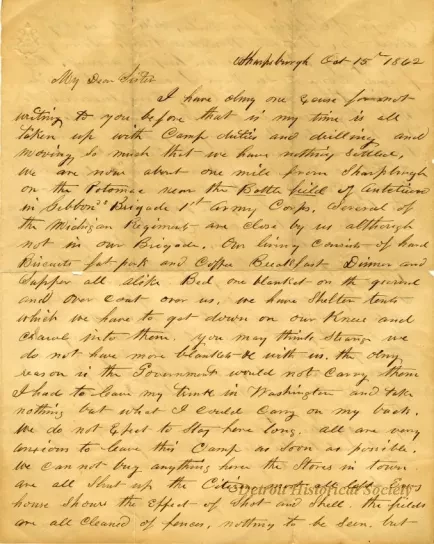 Sharpsburgh Oct 15th 1862
My Dear Sister
I have olny one Excuse for not
writing to you before that is my time is all
taken up with Camp duties and drilling and
moving so much that we have nothing settled,
we are now about one mile from Sharpsburgh
on the Potomac near the Battle field of Antietam
in Gibbon's Brigade 1st Army Corps. Several of
the Michigan Regiments are close by us although
not in our Brigade. Our living Consists of hard
Biscuits fat pork and Coffee Breakfast Dinner and
Supper all alike Bed one blanket on the ground
and Over Coat over us, we have Shelter tents
which we have to get down on our Knees and
Crawl into them. you may think Strange we
do not have more blankets with us. the olny
reason is the Government would not Carry them
I had to leave my trunk in Washington and take
nothing but what I could Carry on my back.
we do not Expect to Stay here long. all are very
anxious to leave this Camp as soon as possible.
we can not buy anything here the Stores in town
are all Shut up the Citizens most all left Every
house Shows the Effect of Shot and Shell. the fields
are all Cleaned of fences, nothing to be Seen but
Detroit Historical Society